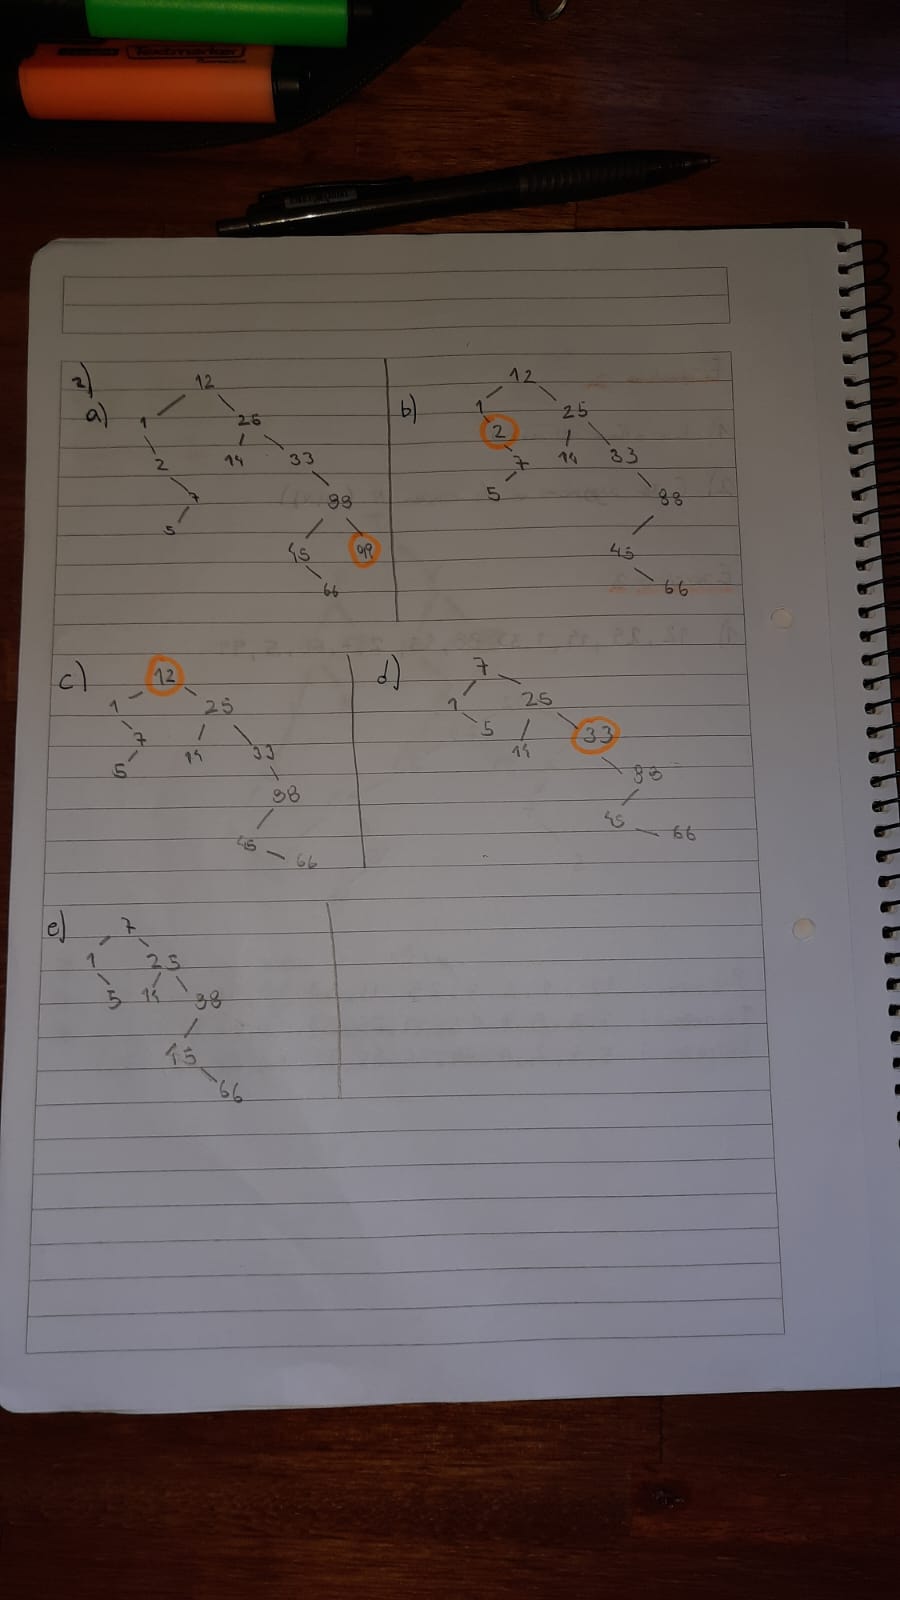 Textmarker
2)
a)
12
1 25
2 14 33
7 88
5 45 99
66
b)
12
1 25
2
7 14 33
5 88
45
66
c)
12
1 25
7 14 33
5 88
45 66
d)
7
1 25
5 14 33
88
45 66
e)
7
1 25
5 14 88
45
66